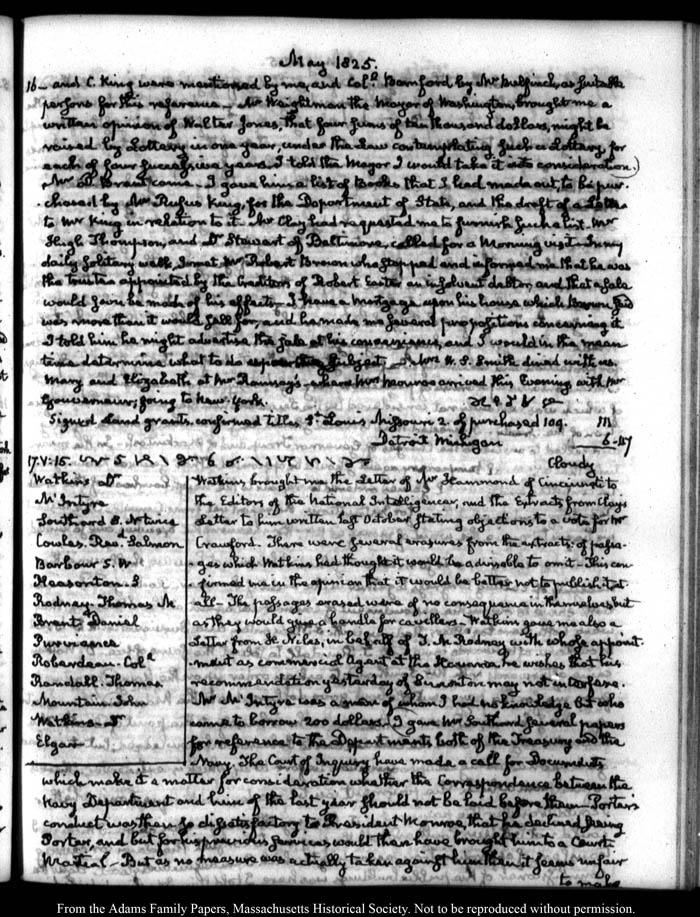 May 1825.
16– and C. King were mentioned by me, and Colo. Bomford by Mr Bulfinch, as suitable
persons for this reference – Mr Weightman the Mayor of Washington, brought me a
written opinion of Walter Jones, that four sums of ten thousand dollars, might be
raised by Lottery in one year, under the Law contemplating such a Lottery, for
each of four successive years. I told the Mayor I would take it into consideration.
Mr D. Brent came. I gave him a list of Books that I had made out, to be pur-
chased by Mr Rufus King, for the Department of State, and the draft of a Letter
to Mr King in relation to it – Mr Clay had requested me to furnish such a list. Mr
Hugh Thompson, and Dr Stewart of Baltimore, called for a Morning visit – In my
daily solitary walk, I met Mr Robert Brown who stopped and informed me that he was
the trustee appointed by the Creditors of Robert Easter an insolvent debtor, and that a sale
would soon be made of his effects – I have a Mortgage upon his house which Brown said
was more than it would sell for, and he made me several propositions concerning it
I told him he might advertise the sale at his convenience, and I would in the mean
time determine what to do subject – Mrs W. S. Smith dined with us.
Mary and Elizabeth at Mr Ramsay's – where Mrs Monroe arrived this Evening with Mr
Gouverneur, going to New-York.
Signed Land grants. confirmed titles St Louis Missouri 2. of purchased 109. 111
Detroit Michigan 6–117
17. V:15. Cloudy
Watkins Dr
McIntyre
Southard S. N twice
Cowles. Salmon
Barbour S. W
Pleasonton. S
Rodney. Thomas M.
Brent. Daniel
Purviance
Roberdeau. Coll
Randall. Thomas
Mountain. John
Watkins. Dr
Elgar
Watkins brought me the Letter of Mr Hammond of Cincinnati to
the Editors of the National Intelligencer, and the Extracts from Clay's
Letter to him written last October, stating objections to a vote for Mr
Crawford. There were several erasures from the extracts: of passa-
ges which Watkins had thought it would be advisable to omit – This con-
firmed me in the opinion that it would be better not to publish it at
all – The passages erased were of no consequence in themselves but
as they would give a handle for cavillers – Watkins gave me also a
Letter from H. Niles, in behalf of T. M. Rodney with whose appoint-
ment as commercial Agent at the Havanna he wishes that his
recommendation yesterday of may not interfere.
Mr McIntyre was a man of whom I had no knowledge but who
came to borrow 200 dollars – I gave Mr Southard several papers
for reference to the Departments both of the Treasury and the
Navy. The Court of Inquiry have made a call for Documents
which make it a matter for consideration whether the Correspondence between the
Navy Department and him of the last year should not be laid before them – Porter's
conduct was then so dissatisfactory to President Monroe, that he declined seeing
Porter, and but for his previous services would then have brought him to a Court
Martial – But as no measure was actually taken against him then it seems unfair
to make
From the Adams Family Papers, Massachusetts Historical Society. Not to be reproduced without permission.